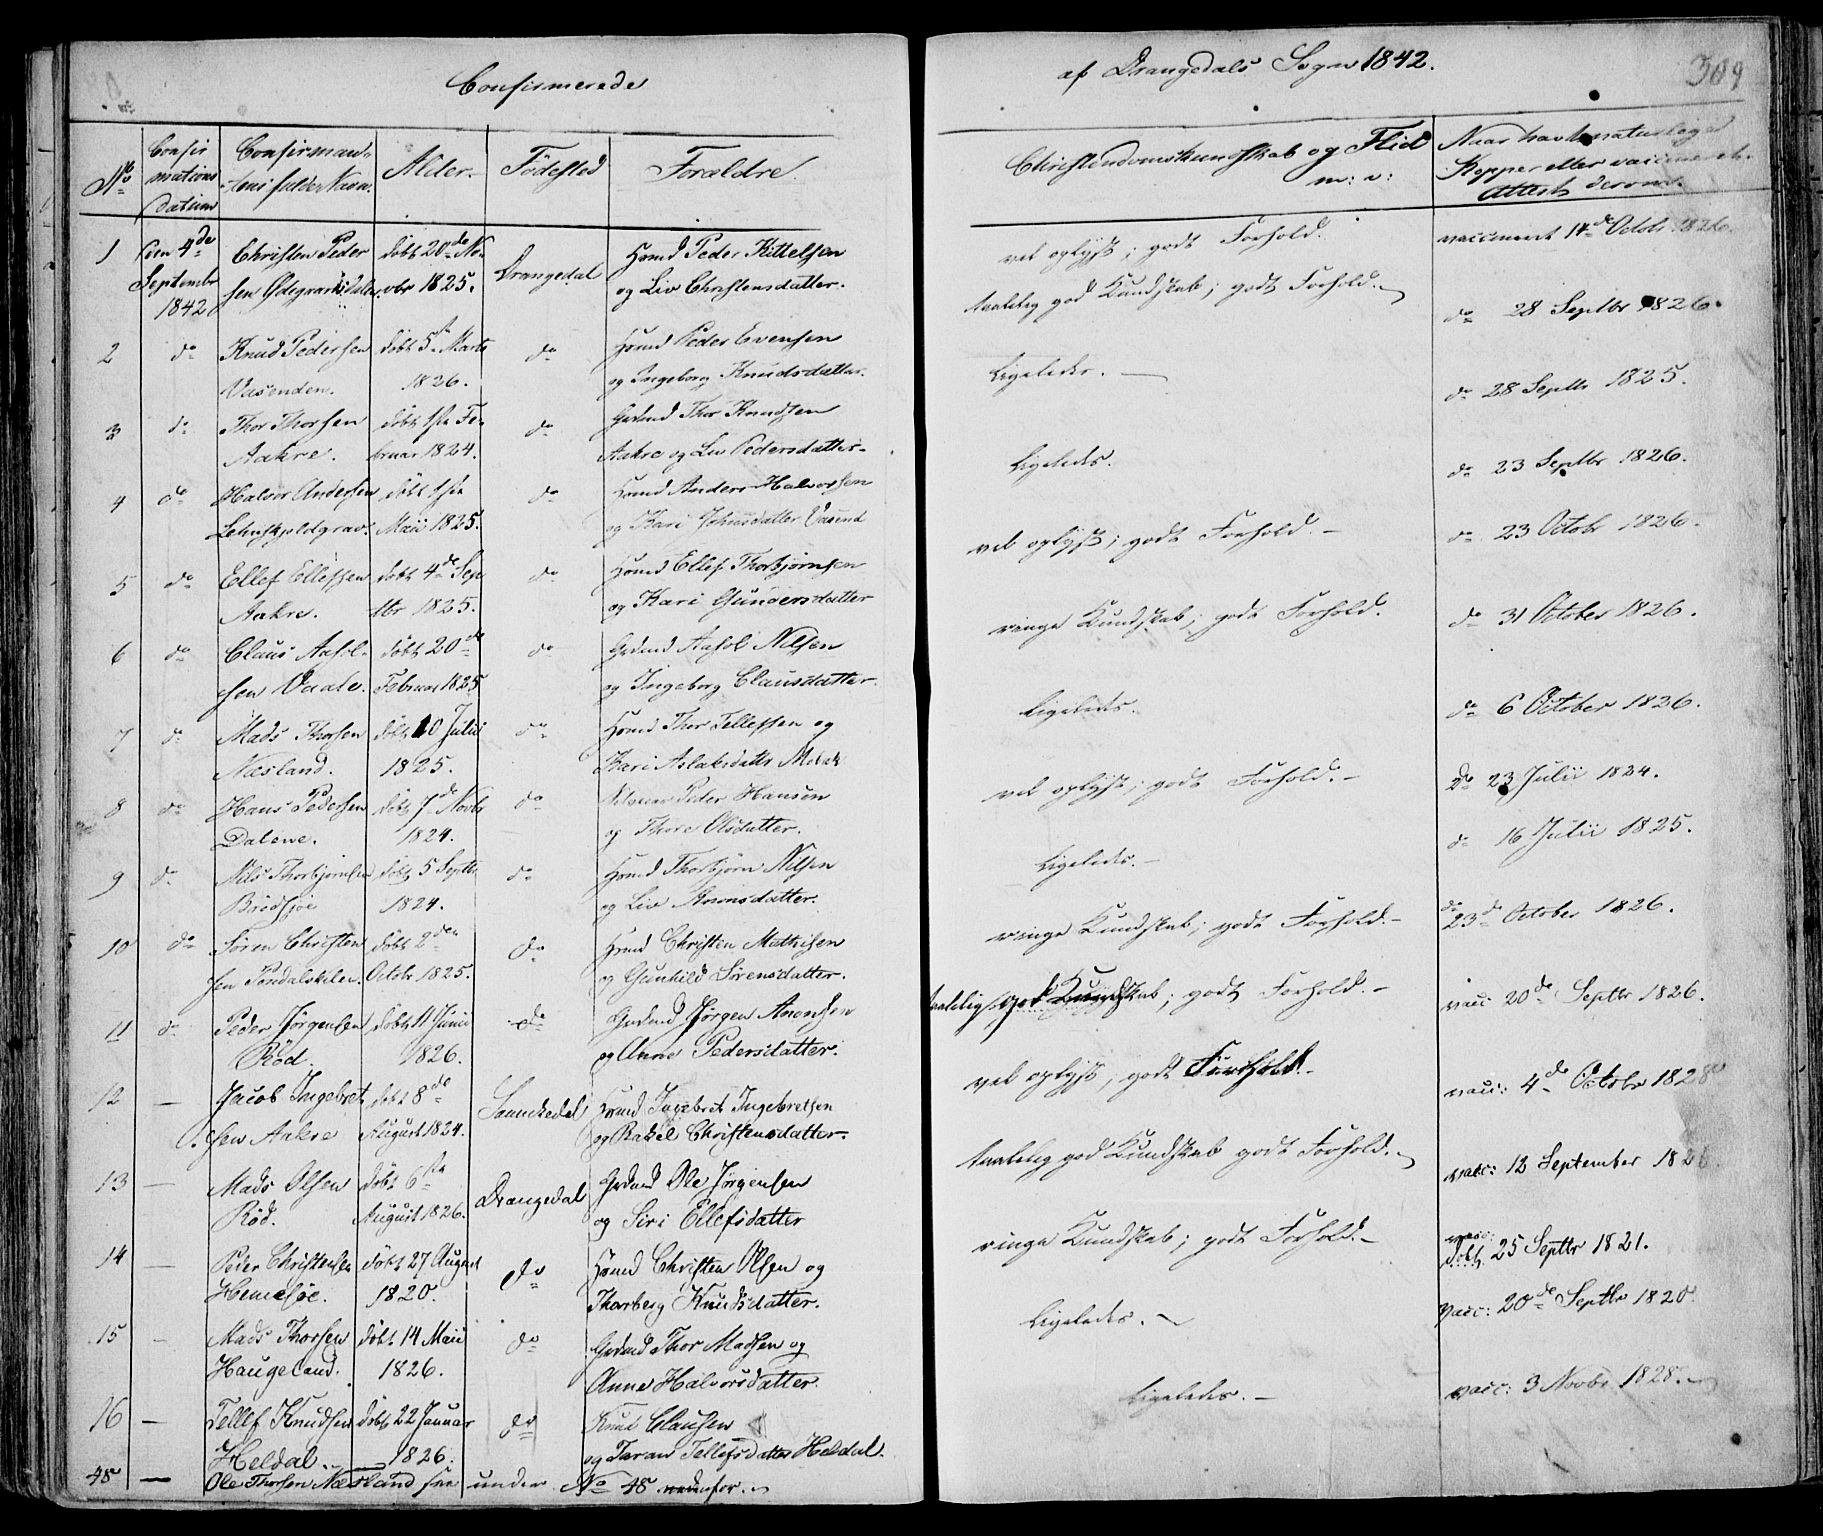 Confirmerede
af Drangedals Sogn 1842.
309
No
Confirmations Datum
Confirmantens fulde Navn.
Alder.
Födested
Forældre.
Christendomskundskab og Flid m: v:
Naar havt naturlige Kopper eller vaccineret. Attest derom.
1
den 4de September 1842
Christen Pedersen Ødegaardsdalen
döbt 20de Novbr 1825.
Drangedal
Hsmd Peder Kittelsen
og Liv Christensdatter.
vel oplyst; godt Forhold.
vaccineret 14de Octobr 1826.
2
do
Knud Pedersen
Vasenden.
döbt 5te Marts
1826.
do
Hsmd Peder Evensen
og Ingeborg Knudsdatter.
taalelig god Kundskab; godt Forhold.
do 28 Septbr 1826.
3
do
Thor Thorsen
Aakre.
döbt 1ste Februar 1824.
do
Grdmd Thor Knudsen
Aakre og Liv Pedersdatter.
Ligeledes.
do 28 Septb 1825.
4
do
Halvor Andersen
döbt 1ste
Maii 1825.
do
Hsmd Anders Halvorsen
og Kari Johnsdatter Vasend
Ligeledes.
do 23 Septbr 1826.
5
do
Ellef Ellefsen
Aakre.
döbt 4de Septbr 1825.
do
Hsmd Ellef Thorbjörnsen
og Kari Gundersdatter
vel oplyst; godt Forhold.
do 23 Octobr 1826.
6
do
Claus Aasolsen Vaale.
döbt 20de
Februar 1825
do
Grdmd Aasol Nilsen
og Ingeborg Clausdatter.
ringe Kundskab; godt Forhold.
do 31 October 1826.
7
do
Mads Thorsen
Næsland.
döbt 10 Julii
1825.
do
Hsmd Thor Tellefsen og
Kari Aslaksdatter
Ligeledes.
do 6 October 1826.
8
do
Hans Pedersen
Dalene.
döbt 7de Novbr
1824.
do
Peder Hansen
og Thore Olsdatter.
vel oplyst; godt Forhold.
do 23 Julii 1824.
9
do
Nils Thorbjörnsen
döbt 5 Septbr
1824.
do
Hsmd Thorbjörn Nilsen
og Liv Anonsdatter.
Ligeledes.
do 16 Julii 1825.
10
do
Sören Christensen Töndalskilen.
döbt 2den
Octobr. 1825.
do
Hsmd Christen Mathisen
og Gunhild Sörensdatter.
ringe Kundskab; godt Forhold.
do 23de October 1826.
11
do
Peder Jörgensen
Röd.
döbt 11 Junii
1826.
do
Grdmd Jörgen Anonsen
og Anne Pedersdatter.
taalelig god Kundskab; godt Forhold.
vacc: 20de Septbr 1826.
12
Jacob Ingebretsen Aakre
döbt 8de
August 1824.
Sannikedal
Hsmd Ingebret Ingebretsen
og Rakel Christensdatter.
vel oplyst, godt Forhold.
vacc: 4de Octobr 1828
13
Mads Olsen
Röd.
döbt 6te
August 1826.
Drangedal
Grdmd Ole Jörgensen
og Siri Ellefsdatter
taalelig god Kundskab godt Forhold.
vacc: 12 September 1826.
14
Peder Christensen
Hemesöe.
döbt 27 August
1820.
do
Hsmd Christen Olsen og
Thorberg Knudsdatter.
ringe Kundskab; godt Forhold.
vacc:
döbt. 25 Septbr 1821.
15
Mads Thorsen
Haugeland.
döbt 14 Maii
1826.
do
Grdmd Thor Madsen og
Anne Halvorsdatter.
Ligeledes.
Vacc: 20de Septbr 1820
16
Tellef Knudsen
Heldal.
döbt 22 Januar
1826.
do
Knud Clausen
og Taran Tellefsdatter Heldal.
Ligeledes.
vacc: 3 Novbr 1828.
48
Ole Thorsen Næsland see under No 48 nedenfor.